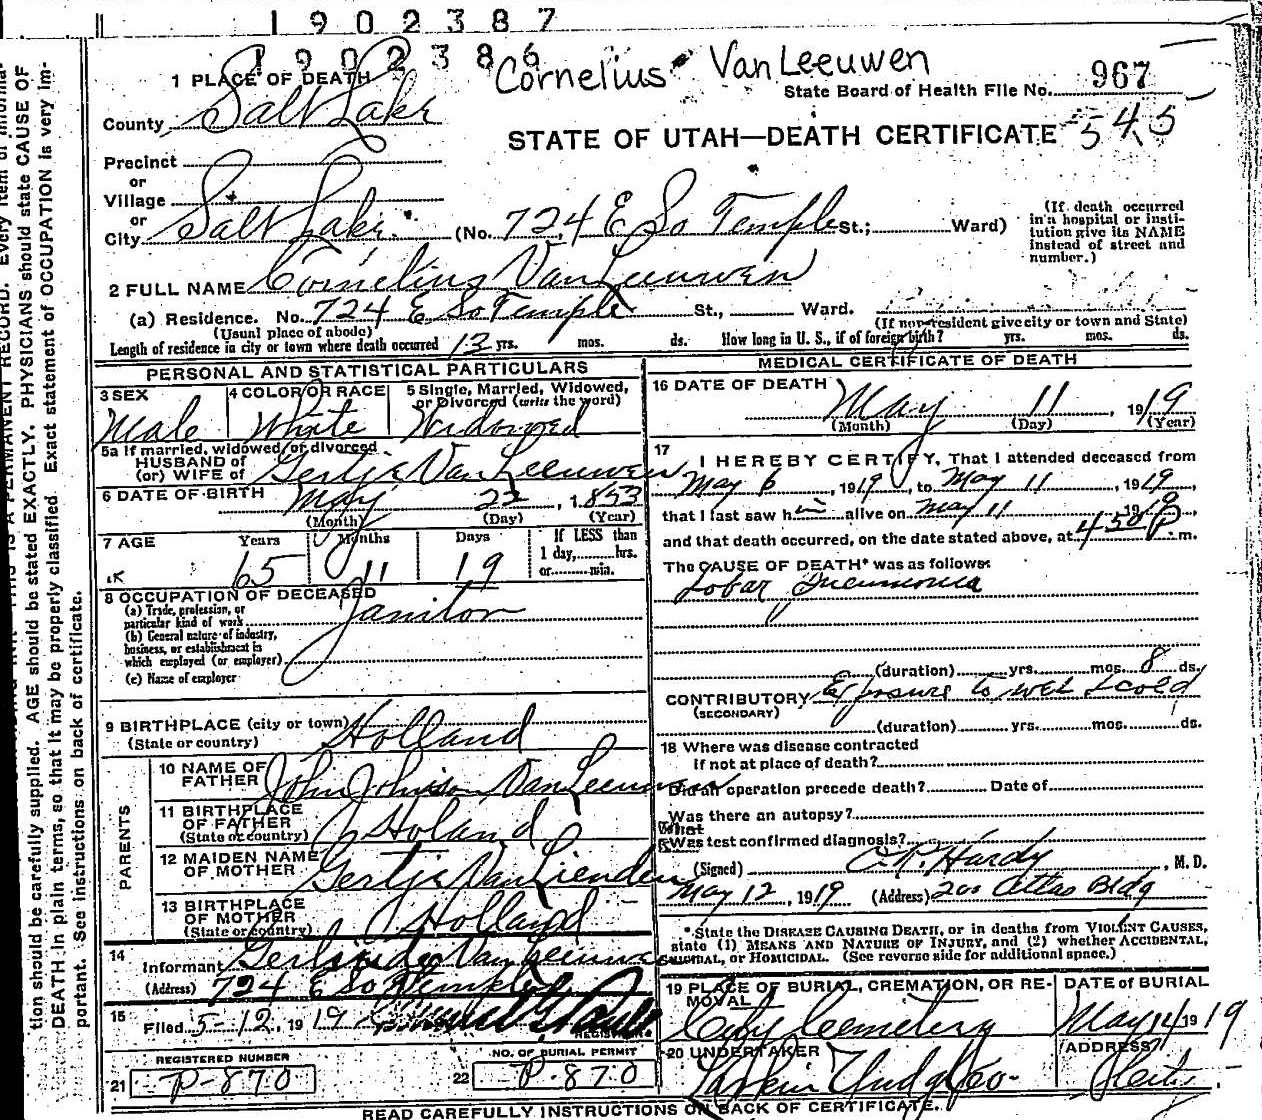 1902387
1902386
Cornelius VanLeeuwen
1 PLACE OF DEATH
State Board of Health File No. 967
County Salt Lake
STATE OF UTAH—DEATH CERTIFICATE 545
Precinct
or
Village
or
City Salt Lake. (No. 724 E So Temple St.; Ward)
(If death occurred in a hospital or institution give its NAME instead of street and number.)
2 FULL NAME Cornelius VanLeeuwen
(a) Residence. No. 724 E So Temple St., Ward.
(Usual place of abode) (If non-resident give city or town and State)
Length of residence in city or town where death occurred 13 yrs. mos. ds. How long in U. S., if of foreign birth? yrs. mos. ds.
PERSONAL AND STATISTICAL PARTICULARS
3 SEX Male
4 COLOR OR RACE White
5 Single, Married, Widowed, or Divorced (write the word) Widowed
5a If married, widowed, or divorced
HUSBAND of
(or) WIFE of Gertje VanLeeuwen
6 DATE OF BIRTH May 22, 1853
(Month) (Day) (Year)
7 AGE Years 65 Months 11 Days 19
If LESS than 1 day, hrs. or min.
8 OCCUPATION OF DECEASED
(a) Trade, profession, or particular kind of work Janitor
(b) General nature of industry, business, or establishment in which employed (or employer)
(c) Name of employer
9 BIRTHPLACE (city or town) Holland
(State or country)
PARENTS
10 NAME OF FATHER John VanLeeuwen
11 BIRTHPLACE OF FATHER (State or country) Holand
12 MAIDEN NAME OF MOTHER Gertje VanLienden
13 BIRTHPLACE OF MOTHER (State or country) Holland
14 Informant VanLeeuwen
(Address) 724 E So Temple
15 Filed 5-12, 1919
REGISTRAR
REGISTERED NUMBER
21 P-870
NO. OF BURIAL PERMIT
22 P-870
MEDICAL CERTIFICATE OF DEATH
16 DATE OF DEATH May 11, 1919
(Month) (Day) (Year)
17 I HEREBY CERTIFY, That I attended deceased from
May 6, 1919, to May 11, 1919,
that I last saw him alive on May 11 1919,
and that death occurred, on the date stated above, at 450 P m.
The CAUSE OF DEATH* was as follows:
Lobar Pneumonia
"
(duration) yrs. mos. 8 ds.
CONTRIBUTORY Exposure to wet & cold
(SECONDARY)
(duration) yrs. mos. ds.
18 Where was disease contracted
if not at place of death?
Did an operation precede death? Date of
Was there an autopsy?
What
Was test confirmed diagnosis?
(Signed) Hardy, M. D.
May 12, 1919 (Address) 200 Atlas Bldg
*State the DISEASE CAUSING DEATH, or in deaths from VIOLENT CAUSES, state (1) MEANS AND NATURE OF INJURY, and (2) whether ACCIDENTAL, SUICIDAL, or HOMICIDAL. (See reverse side for additional space.)
19 PLACE OF BURIAL, CREMATION, OR REMOVAL City Cemetery
DATE OF BURIAL May 14 1919
20 UNDERTAKER Larkin Undg Co.
ADDRESS City.
READ CAREFULLY INSTRUCTIONS ON BACK OF CERTIFICATE.
tion should be carefully supplied. AGE should be stated EXACTLY. PHYSICIANS should state CAUSE OF
DEATH in plain terms, so that it may be properly classified. Exact statement of OCCUPATION is very im-
portant. See instructions on back of certificate.